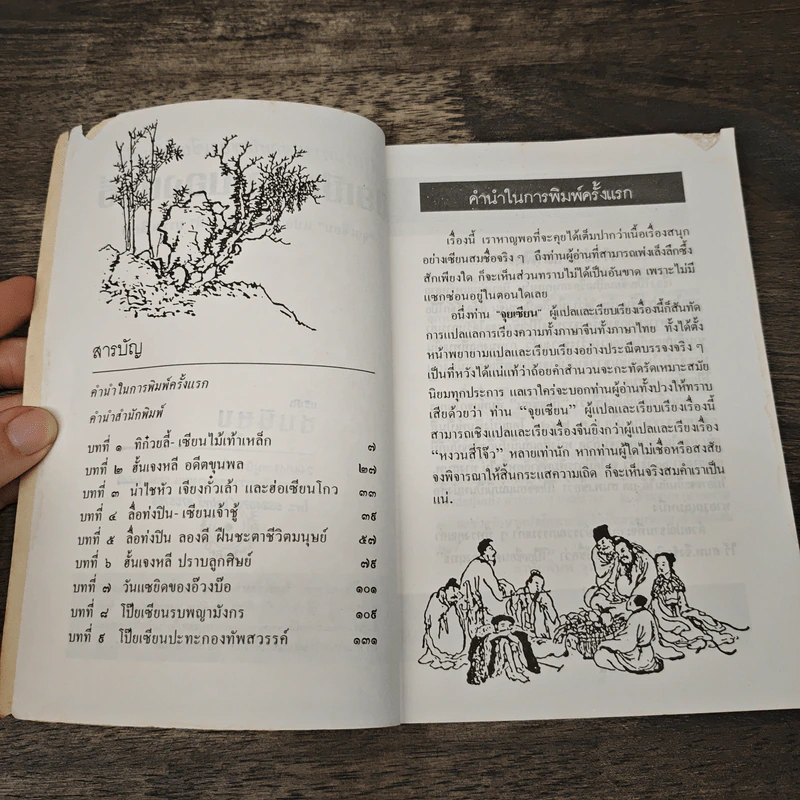 สารบัญ
คำนำในการพิมพ์ครั้งแรก
คำนำสำนักพิมพ์
บทที่ ๑ ทิก๋วยลี้-เซียนไม้เท้าเหล็ก ๗
บทที่ ๒ ฮั้นเจงหลี อดีตขุนพล ๒๗
บทที่ ๓ น่าไชหัว เจียงกั๋วเล้า และฮ่อเซียนโกว ๓๓
บทที่ ๔ ลื่อท่งปิน-เซียนเจ้าชู้ ๓๙
บทที่ ๕ ลื่อท่งปิน ลองดี ฝืนชะตาชีวิตมนุษย์ ๕๗
บทที่ ๖ ฮั้นเจงหลี ปราบลูกศิษย์ ๗๙
บทที่ ๗ วันแซยิดของอ๊วงบ๊อ ๑๐๑
บทที่ ๘ โป๊ยเซียนรบพญามังกร ๑๐๙
บทที่ ๙ โป๊ยเซียนปะทะกองทัพสวรรค์ ๑๓๑
คำนำในการพิมพ์ครั้งแรก
เรื่องนี้ เราหาญพอที่จะคุยได้เต็มปากว่าเนื้อเรื่องสนุก
อย่างเซียนสมชื่อจริง ๆ ถึงท่านผู้อ่านที่สามารถเพ่งเล็งลึกซึ้ง
สักเพียงใด ก็จะเห็นส่วนทราบไม่ได้เป็นอันขาด เพราะไม่มี
แซกซ่อนอยู่ในตอนใดเลย
อนึ่งท่าน "จุยเซียน" ผู้แปลและเรียบเรียงเรื่องนี้ก็สันทัด
การแปลแลการเรียงความทั้งภาษาจีนทั้งภาษาไทย ทั้งได้ตั้ง
หน้าพยายามแปลและเรียบเรียงอย่างประณีตบรรจงจริง ๆ
เป็นที่หวังได้แน่แท้ว่าถ้อยคำสำนวนจะกะทัดรัดเหมาะสมัย
นิยมทุกประการ แลเราใคร่จะบอกท่านผู้อ่านทั้งปวงให้ทราบ
เสียด้วยว่า ท่าน "จุยเซียน" ผู้แปลและเรียบเรียงเรื่องนี้
สามารถเชิงแปลและเรียงเรื่องจีนยิ่งกว่าผู้แปลและเรียงเรื่อง
"หงวนสี่โจ๊ว" หลายเท่านัก หากท่านผู้ใดไม่เชื่อหรือสงสัย
จงพิจารณาให้สิ้นกระแสความเถิด ก็จะเห็นจริงสมคำเราเป็น
แน่.